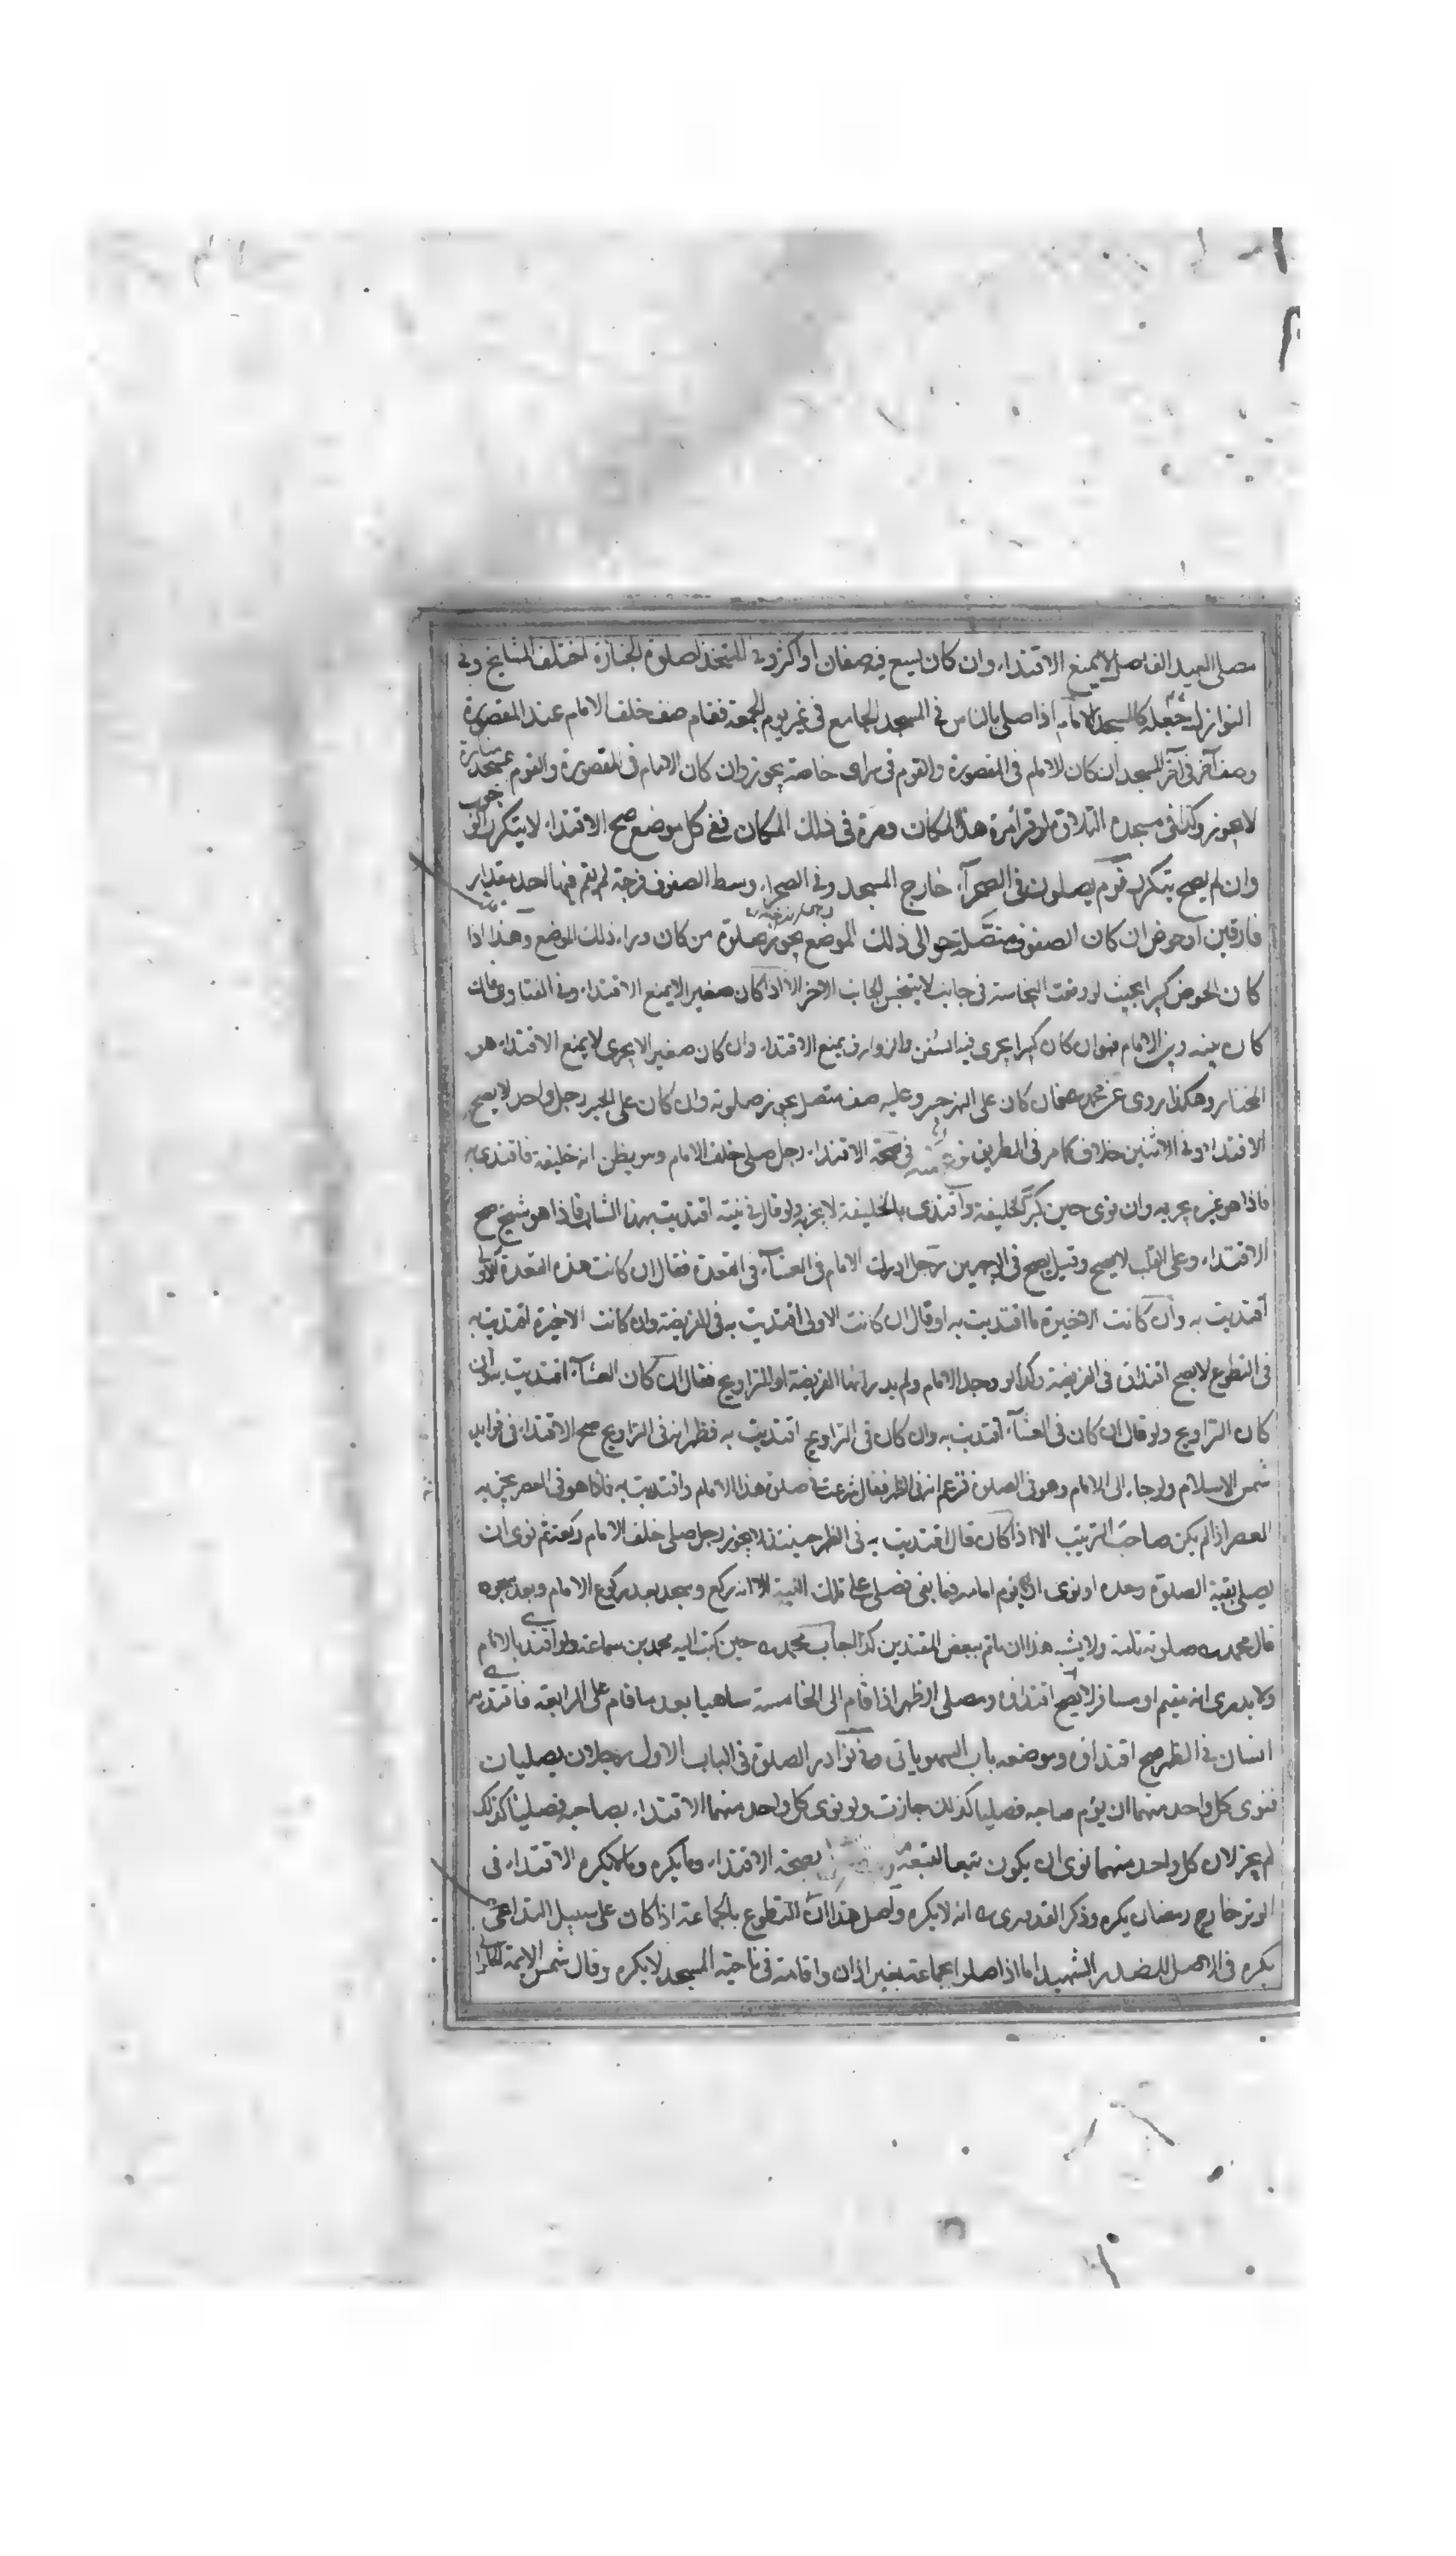 مصلى العيد الفاصل لا يمنع الاقتداء وان كان يسع فيه صفان او اكثر وفى المتخذ لصلوة الجنازة اختلف المشايخ وفى
النوازل جعله كالمسجد الامام اذا صلى بالناس فى المسجد الجامع فى غير يوم الجمعة فقام صف خلف الامام عند المقصورة
وصف آخر فى آخر المسجد ان كان الامام فى المقصورة والقوم فى خاصة يجوز وان كان الامام فى المقصورة والقوم
لا يجوز وكذا فى سجدة التلاوة لو قرأ مرة هذا المكان ومرة فى ذلك المكان ففى كل موضع صح الاقتداء لا يتكرر
وان لم يصح يتكرر قوم يصلون فى الصحرآء خارج المسجد وفى الصحراء وسط الصفوف فرجة لم يقم فيها احد مقدار
فارقين او حوض ان كان الصفوف متصلة حوالى ذلك الموضع يجوز صلوة من كان وراء ذلك الموضع وهذا اذا
كان الحوض كبيرا بحيث لو وقعت النجاسة فى جانب لا يتنجس الجانب الاخر الا اذا كان صغيرا لا يمنع الاقتداء وفى الفتاوى
كان بينه وبين الامام نهر ان كان كبيرا يجرى فيه السفن والزوارق يمنع الاقتداء وان كان صغيرا لا يجرى لا يمنع الاقتداء هو
المختار وهكذا روى عن محمد فان كان على النهر جسر وعليه صف متصل يجوز صلوته وان كان على الجسر رجل واحد لا يصح
الاقتداء وفى الاثنين خلاف كما مر فى الطريق نوع منه فى صحة الاقتداء رجل صلى خلف الامام وهو يظن انه خليفة فاقتدى به
فاذا هو غيره يجزيه وان نوى حين كبر الخليفة واقتدى بالخليفة لا يجزيه ولو قال فى نيته اقتديت بهذا الشاب فاذا هو شيخ صح
الاقتداء وعلى القلب لا يصح وقيل يصح فى الوجهين رجل ادرك الامام فى العشآء فى القعدة فقال ان كانت هذه القعدة الاولى
اقتديت به وان كانت الاخيرة ما اقتديت به او قال ان كانت الاولى اقتديت به فى الفريضة وان كانت الاخيرة اقتديت به
فى التطوع لا يصح اقتداؤه فى الفريضة وكذا لو وجد الامام ولم يدر انها الفريضة او التراويح فقال ان كان العشآء اقتديت به وان
كان التراويح ولو قال ان كان فى العشآء اقتديت به وان كان فى التراويح اقتديت به فظهر انه فى التراويح صح الاقتداء فى فوايد
شمس الاسلام ولو جاء الى الامام وهو فى الصلوة فزعم انه فى الظهر فقال شرعت فى صلوة هذا الامام واقتديت به فاذا هو فى العصر يجزيه
العصر اذا لم يكن صاحب الترتيب الا اذا كان قال اقتديت به فى الظهر حينئذ لا يجوز رجل صلى خلف الامام ركعة ثم نوى ان
يصلى بقية الصلوة وحده او نوى ان يؤم امامه فيما بقى فصلى على تلك النية الا انه ركع وسجد بعد ركوع الامام وبعد سجوده
قال محمد صلوته تامة ولا يشبه هذا ان ياتم ببعض المقتدين كذا اجاب محمد حين كتب اليه محمد بن سماعة ولو اقتدى بالامام
ولا يدرى انه مقيم او مسافر لا يصح اقتداؤه ومصلى الظهر اذا قام الى الخامسة ساهيا بعد ما قام على الرابعة فاقتدى به
انسان فى الظهر صح اقتداؤه وموضعه باب السهو ياتى وفى نوادر الصلوة فى الباب الاول رجلان يصليان
فنوى كل واحد منهما ان يؤم صاحبه فصليا كذلك جازت ولو نوى كل واحد منهما الاقتداء بصاحبه فصليا كذلك
لم يجز لان كل واحد منهما نوى ان يكون تبعا لتبعه بصحة الاقتداء وما يكره وما لا يكره الاقتداء فى
الوتر خارج رمضان يكره وذكر القدورى انه لا يكره واصل هذا ان التطوع بالجماعة اذا كان على سبيل التداعى
يكره فى الاصل للصدر الشهيد اما اذا صلوا بجماعة بغير اذان واقامة فى ناحية المسجد لا يكره وقال شمس الايمة